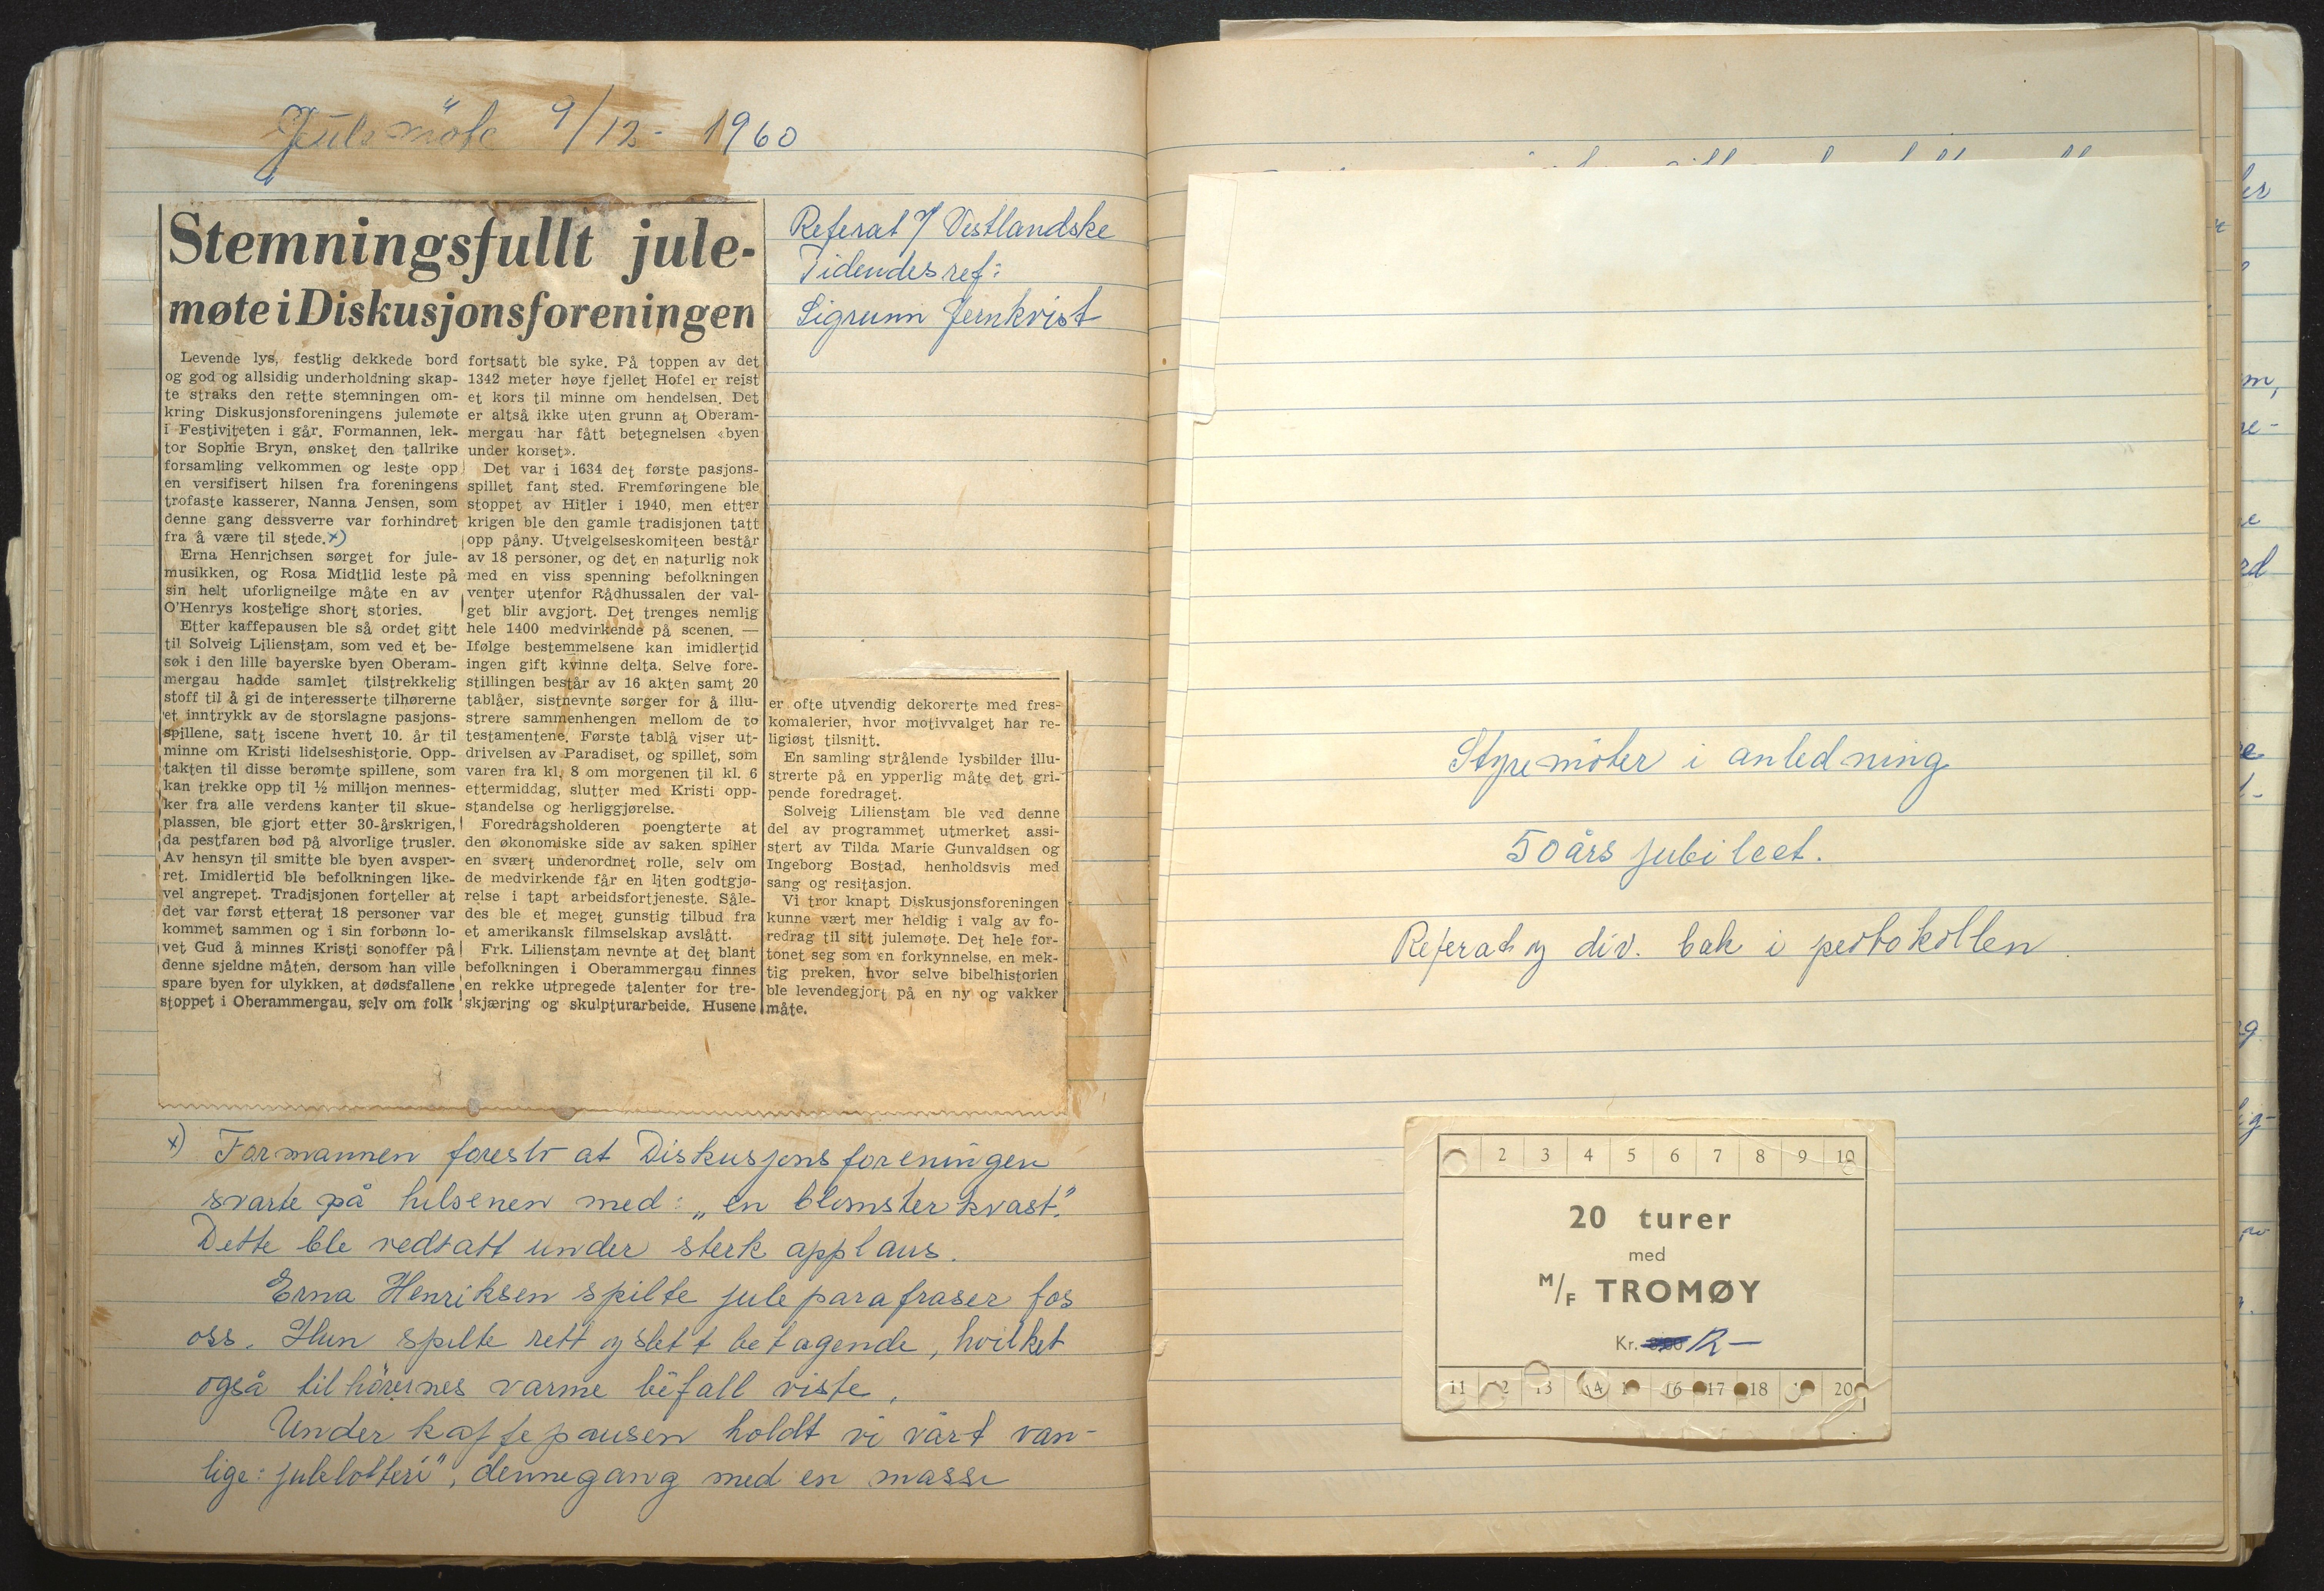 Julemöte 9/12 - 1960
Stemningsfullt jule-
møte i Diskusjonsforeningen
Referat v/ Vestlandske
Tidendes ref:
Sigrunn Jernkvist
Levende lys, festlig dekkede bord
og god og allsidig underholdning skap-
te straks den rette stemningen om-
kring Diskusjonsforeningens julemøte
i Festiviteten i går. Formannen, lek-
tor Sophie Bryn, ønsket den tallrike
forsamling velkommen og leste opp
en versifisert hilsen fra foreningens
trofaste kasserer, Nanna Jensen, som
denne gang dessverre var forhindret
fra å være til stede. x)
Erna Henrichsen sørget for jule-
musikken, og Rosa Midtlid leste på
sin helt uforligneilge måte en av
O'Henrys kostelige short stories.
Etter kaffepausen ble så ordet gitt
til Solveig Lilienstam, som ved et be-
søk i den lille bayerske byen Oberam-
mergau hadde samlet tilstrekkelig
stoff til å gi de interesserte tilhørerne
et inntrykk av de storslagne pasjons-
spillene, satt iscene hvert 10. år til
minne om Kristi lidelseshistorie. Opp-
takten til disse berømte spillene, som
kan trekke opp til ½ million mennes-
ker fra alle verdens kanter til skue-
plassen, ble gjort etter 30-årskrigen,
da pestfaren bød på alvorlige trusler.
Av hensyn til smitte ble byen avsper-
ret. Imidlertid ble befolkningen like-
vel angrepet. Tradisjonen forteller at
det var først etterat 18 personer var
kommet sammen og i sin forbønn lo-
vet Gud å minnes Kristi sonoffer på
denne sjeldne måten, dersom han ville
spare byen for ulykken, at dødsfallene
stoppet i Oberammergau, selv om folk
fortsatt ble syke. På toppen av det
1342 meter høye fjellet Hofel er reist
et kors til minne om hendelsen. Det
er altså ikke uten grunn at Oberam-
mergau har fått betegnelsen «byen
under korset».
Det var i 1634 det første pasjons-
spillet fant sted. Fremføringene ble
stoppet av Hitler i 1940, men etter
krigen ble den gamle tradisjonen tatt
opp påny. Utvelgelseskomiteen består
av 18 personer, og det er naturlig nok
med en viss spenning befolkningen
venter utenfor Rådhussalen der val-
get blir avgjort. Det trenges nemlig
hele 1400 medvirkende på scenen. —
Ifølge bestemmelsene kan imidlertid
ingen gift kvinne delta. Selve fore-
stillingen består av 16 akter samt 20
tablåer, sistnevnte sørger for å illu-
strere sammenhengen mellom de to
testamentene. Første tablå viser ut-
drivelsen av Paradiset, og spillet, som
varer fra kl. 8 om morgenen til kl. 6
ettermiddag, slutter med Kristi opp-
standelse og herliggjørelse.
Foredragsholderen poengterte at
den økonomiske side av saken spiller
en svært underordnet rolle, selv om
de medvirkende får en liten godtgjø-
relse i tapt arbeidsfortjeneste. Såle-
des ble et meget gunstig tilbud fra
et amerikansk filmselskap avslått.
Frk. Lilienstam nevnte at det blant
befolkningen i Oberammergau finnes
en rekke utpregede talenter for tre-
skjæring og skulpturarbeide. Husene
er ofte utvendig dekorerte med fres-
komalerier, hvor motivvalget har re-
ligiøst tilsnitt.
En samling strålende lysbilder illu-
strerte på en ypperlig måte det gri-
pende foredraget.
Solveig Lilienstam ble ved denne
del av programmet utmerket assi-
stert av Tilda Marie Gunvaldsen og
Ingeborg Bostad, henholdsvis med
sang og resitasjon.
Vi tror knapt Diskusjonsforeningen
kunne vært mer heldig i valg av fo-
redrag til sitt julemøte. Det hele for-
tonet seg som en forkynnelse, en mek-
tig preken, hvor selve bibelhistorien
ble levendegjort på en ny og vakker
måte.
x) Formannen foreslo at Diskusjonsforeningen
svarte på hilsenen med: „en blomsterkvast".
Dette ble vedtatt under sterk applaus.
Erna Henriksen spilte juleparafraser for
oss. Hun spilte rett og slett betagende, hvilket
også tilhörernes varme bifall viste.
Under kaffepausen holdt vi vårt van-
lige: julelotteri", dennegang med en masse
Styremöter i anledning
50 års jubileet.
Referat og div. bak i protokollen.
2 3 4 5 6 7 8 9 10
20 turer
med
M/F TROMØY
Kr. 12 —
11 12 13 14 16 17 18 20